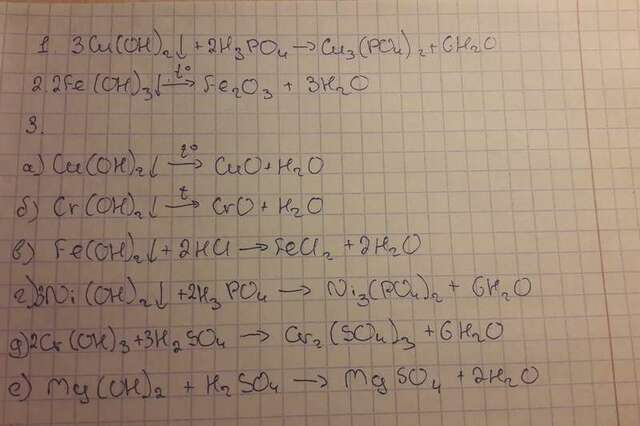 1. 3Cu(OH)₂↓ + 2H₃PO₄ → Cu₃(PO₄)₂ + 6H₂O
2. 2Fe(OH)₃↓ t°→ Fe₂O₃ + 3H₂O
3.
а) Cu(OH)₂↓ t°→ CuO + H₂O
б) Cr(OH)₂↓ t→ CrO + H₂O
в) Fe(OH)₂↓ + 2HCl → FeCl₂ + 2H₂O
г) 3Ni(OH)₂↓ + 2H₃PO₄ → Ni₃(PO₄)₂ + 6H₂O
д) 2Cr(OH)₃ + 3H₂SO₄ → Cr₂(SO₄)₃ + 6H₂O
е) Mg(OH)₂ + H₂SO₄ → MgSO₄ + 2H₂O